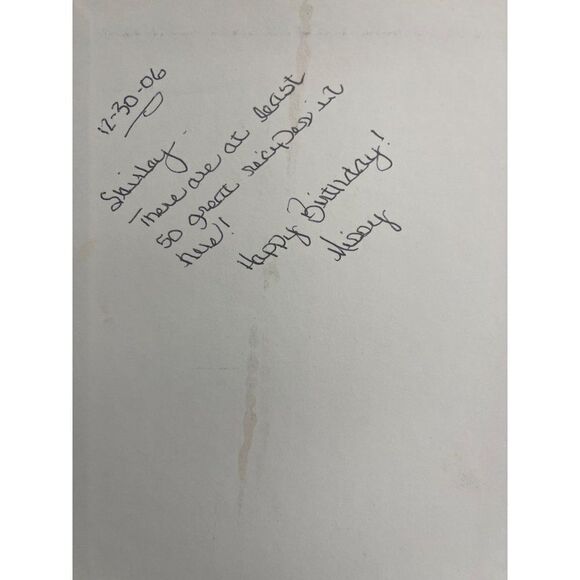 12-30-06
Shirley -
There are at least
50 great recipes in
here!!
Happy Birthday!
Missy